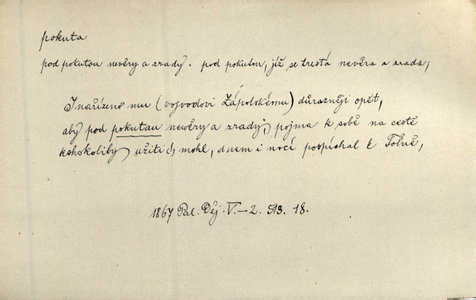 pokuta
pod pokutou nevěry a zrady. pod pokutou, jíž se trestá nevěra a zrada,
I nařízeno mu (vojvodovi Zápolskému) důrazněji opět,
aby pod pokutau nevěry a zrady, pojma k sobě na cestě
kohokoliby užiti mohl, dnem i nocí pospíchal k Tolně,
1867 Pal. Děj. V.-2. 18.